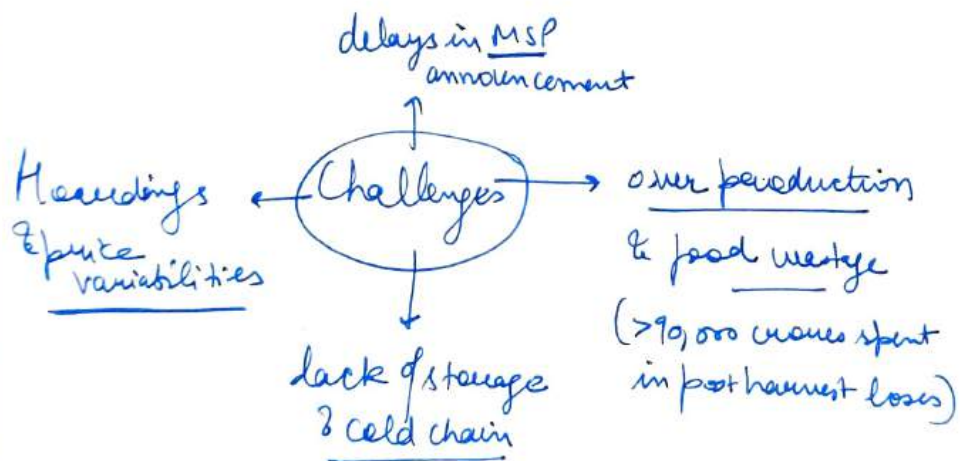 delays in MSP
announcement
Challenges
Hoardings
& price
variabilities
over production
& food wastage
(>90,000 crores spent
in post harvest loses)
lack of storage
& cold chain